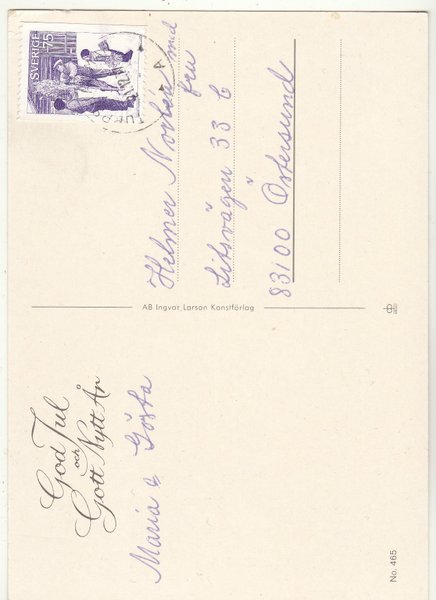 God Jul
och
Gott Nytt År
Maria & Gösta
No. 465
AB Ingvar Larson Konstförlag
SVERIGE 75
Helmer med
fru
Litsvägen 33 C
83100 Östersund